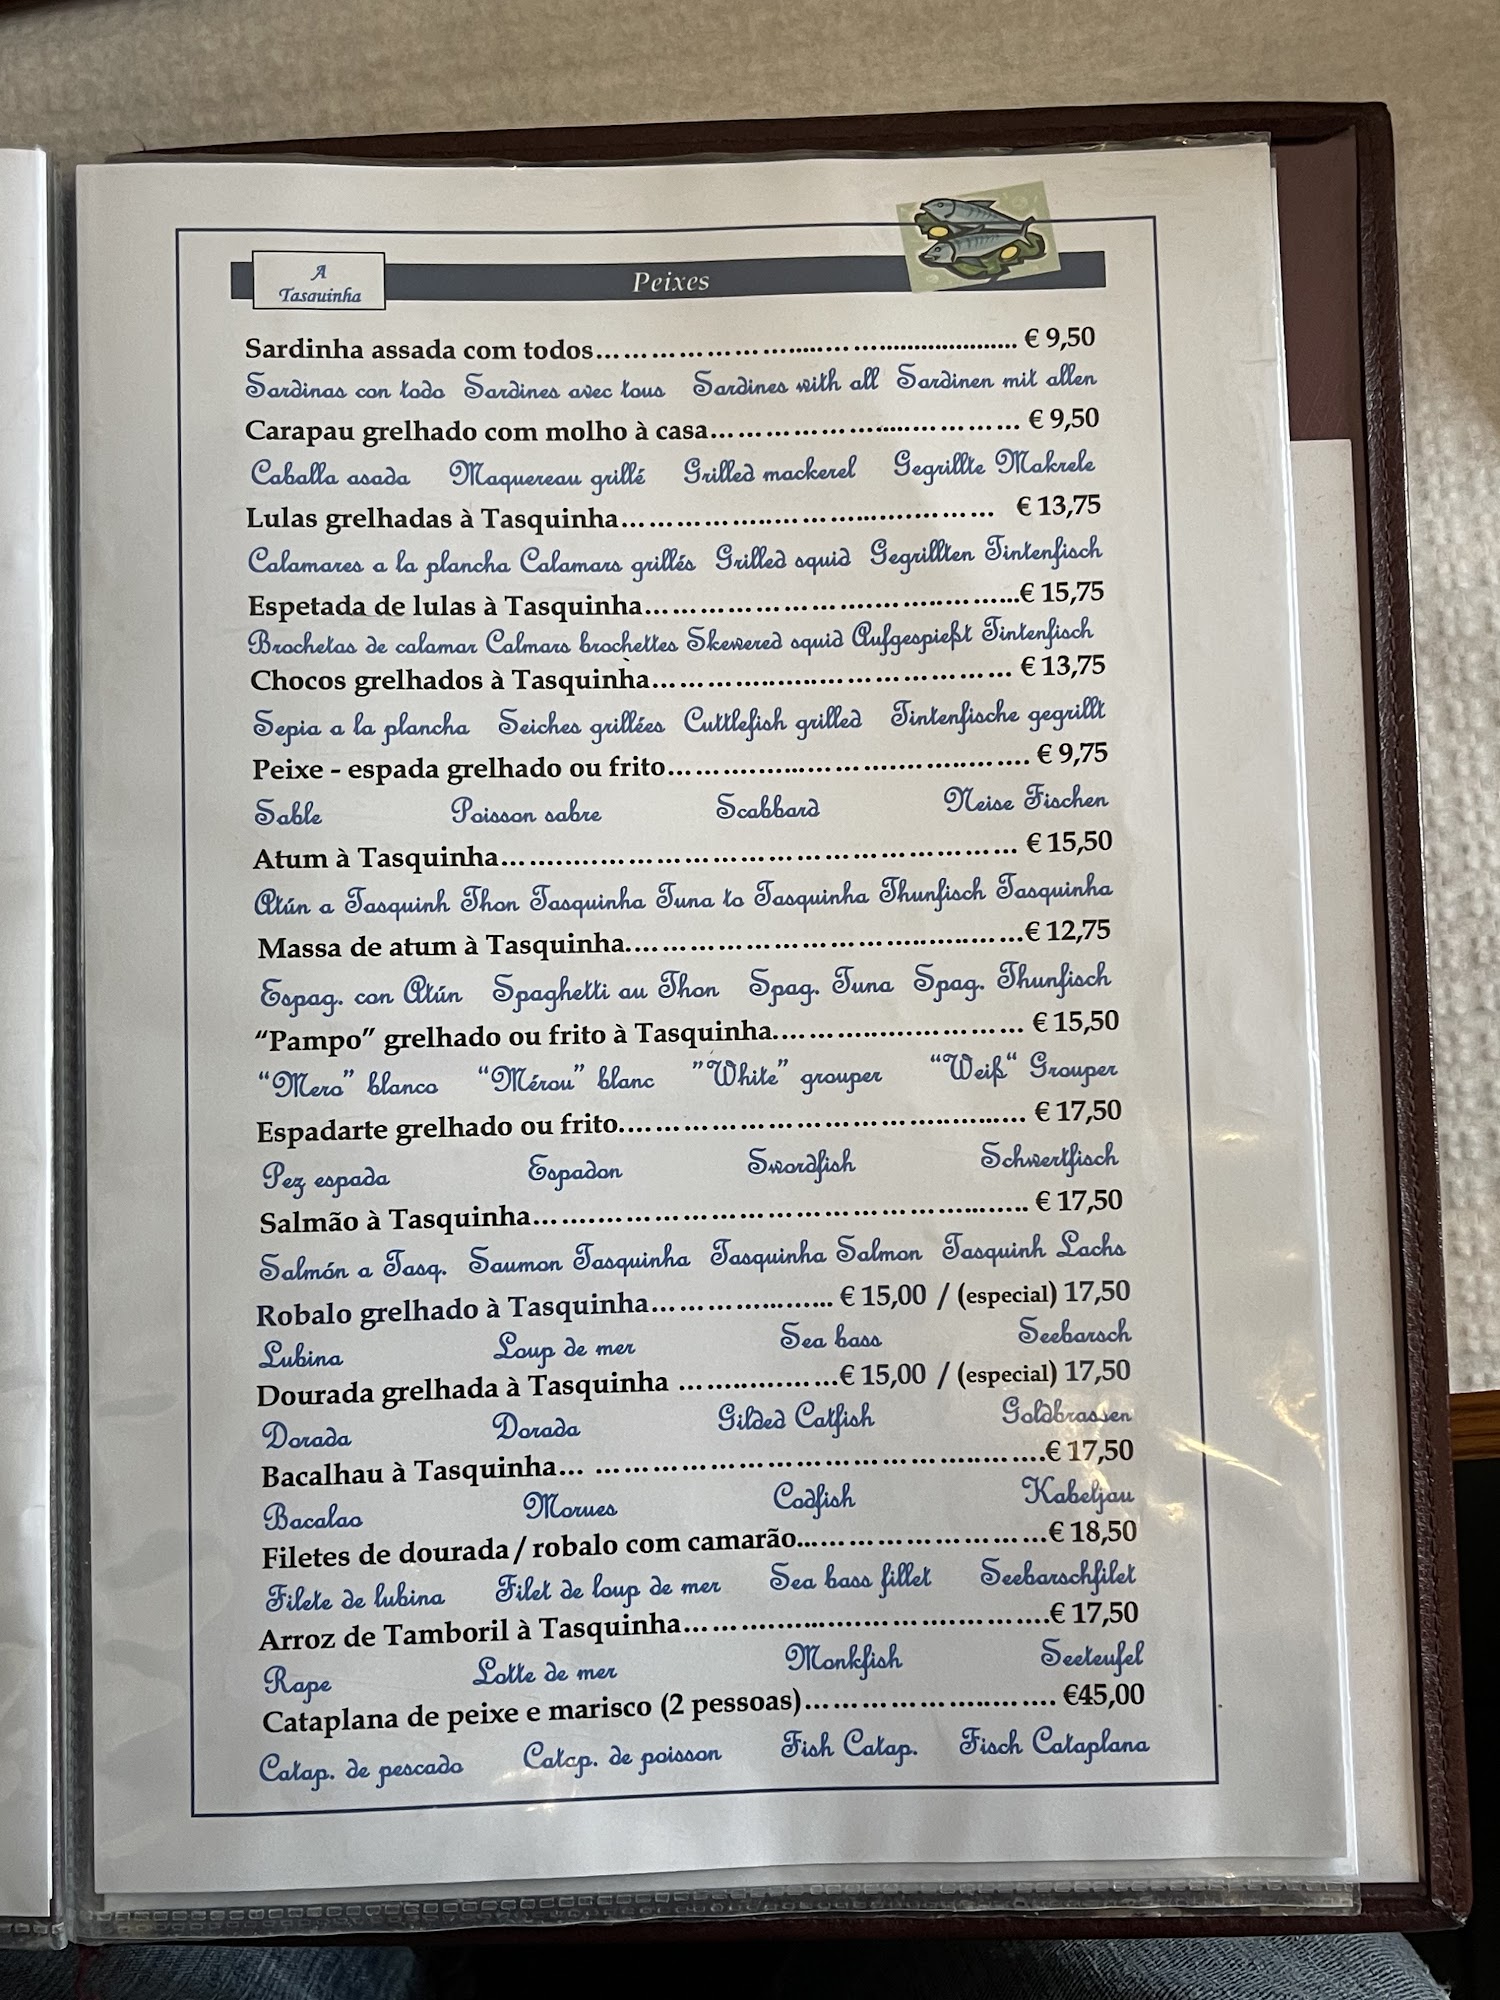 A
Tasquinha
Peixes
Sardinha assada com todos........................................ € 9,50
Sardinas con todo Sardines avec tous Sardines with all Sardinen mit allen
Carapau grelhado com molho à casa........................................ € 9,50
Caballa asada Maquereau grillé Grilled mackerel Gegrillte Makrele
Lulas grelhadas à Tasquinha........................................ € 13,75
Calamares a la plancha Calamars grillés Grilled squid Gegrillten Tintenfisch
Espetada de lulas à Tasquinha........................................€ 15,75
Brochetas de calamar Calmars brochettes Skewered squid Aufgespießt Tintenfisch
Chocos grelhados à Tasquinha........................................ € 13,75
Sepia a la plancha Seiches grillées Cuttlefish grilled Tintenfische gegrillt
Peixe - espada grelhado ou frito........................................ € 9,75
Sable Poisson sabre Scabbard Neise Fischen
Atum à Tasquinha........................................ € 15,50
Atún a Tasquinh Thon Tasquinha Tuna to Tasquinha Thunfisch Tasquinha
Massa de atum à Tasquinha........................................€ 12,75
Espag. con Atún Spaghetti au Thon Spag. Tuna Spag. Thunfisch
“Pampo” grelhado ou frito à Tasquinha........................................ € 15,50
“Mero” blanco “Mérou” blanc ”White” grouper “Weiß“ Grouper
Espadarte grelhado ou frito........................................ € 17,50
Pez espada Espadon Swordfish Schwertfisch
Salmão à Tasquinha........................................ € 17,50
Salmón a Tasq. Saumon Tasquinha Tasquinha Salmon Tasquinh Lachs
Robalo grelhado à Tasquinha.............................. € 15,00 / (especial) 17,50
Lubina Loup de mer Sea bass Seebarsch
Dourada grelhada à Tasquinha ..............................€ 15,00 / (especial) 17,50
Dorada Dorada Gilded Catfish Goldbrassen
Bacalhau à Tasquinha... ........................................€ 17,50
Bacalao Morues Codfish Kabeljau
Filetes de dourada / robalo com camarão..............................€ 18,50
Filete de lubina Filet de loup de mer Sea bass fillet Seebarschfilet
Arroz de Tamboril à Tasquinha........................................€ 17,50
Rape Lotte de mer Monkfish Seeteufel
Cataplana de peixe e marisco (2 pessoas).............................. €45,00
Catap. de pescado Catap. de poisson Fish Catap. Fisch Cataplana